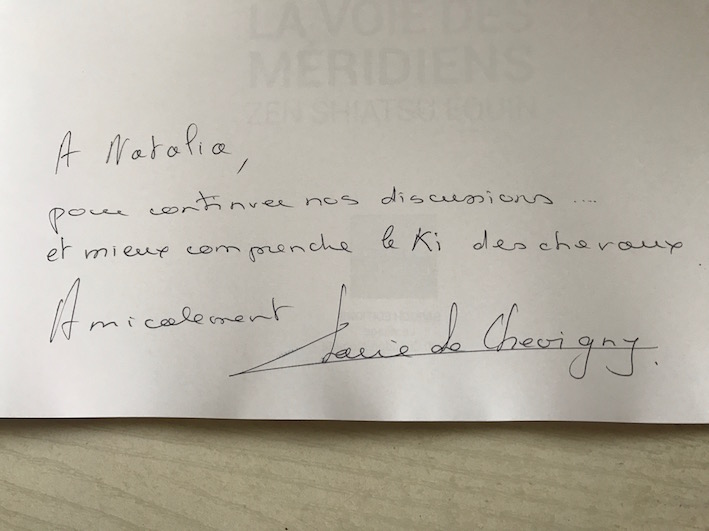 LA VOIE DES
MÉRIDIENS
ZEN SHIATSU ÉQUIN
A Natalia,
pour continuer nos discussions ....
et mieux comprendre le Ki des chevaux.
Amicalement
de Chevigny.